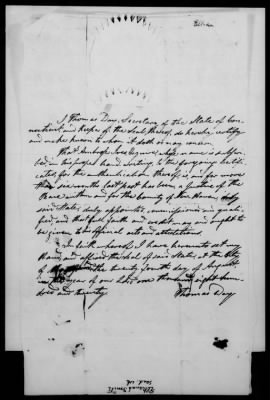 I Thomas Day, Secretary of the State of Con-
necticut, and keeper of the Seal thereof, do hereby certify
and make known to whom it doth or may concern
That Esquire, whose name is subscri-
bed in his proper hand writing to the foregoing certifi-
cate, for the authentication thereof is and for more
than last past has been a Justice of the
Peace within and for the County of New Haven
said State, duly appointed, commissioned and quali-
fied, and that full faith and credit may and ought to
be given to his official acts and attestations.
In faith whereof, I have hereunto set my
Hand, and affixed the Seal of said State, at the City
of the twenty fourth day of
in the year of our Lord one thousand eight hun-
dred and twenty
Thomas Day